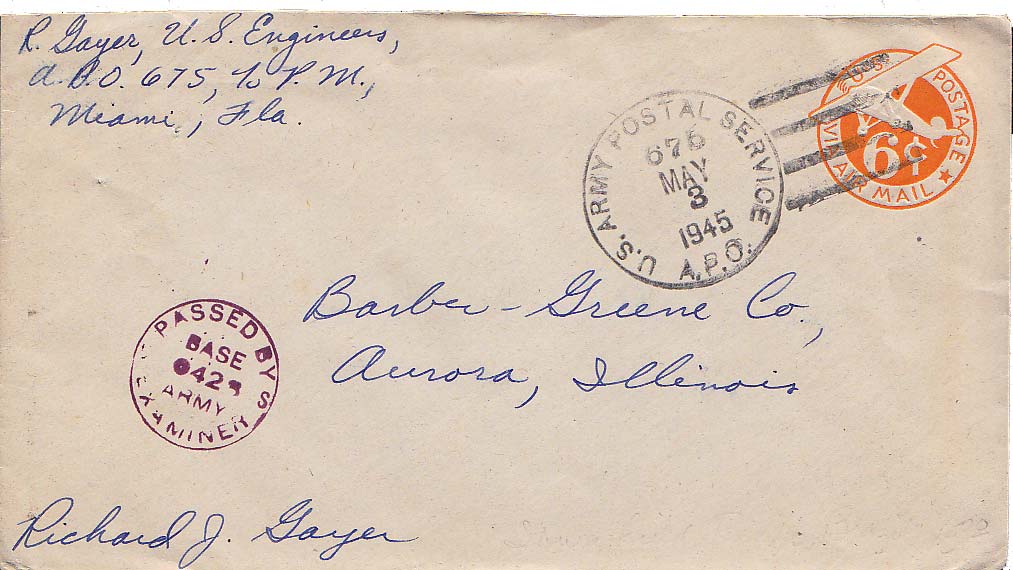 R. Gayer, U. S. Engineers,
A.P.O. 675, c/o P. M.,
Miami, Fla.
U.S. ARMY POSTAL SERVICE
675
MAY
3
1945
A.P.O.
U.S. POSTAGE
VIA AIR MAIL
6¢
Barber-Greene Co.,
Aurora, Illinois
PASSED BY
BASE
0428
ARMY
EXAMINER
Richard J. Gayer